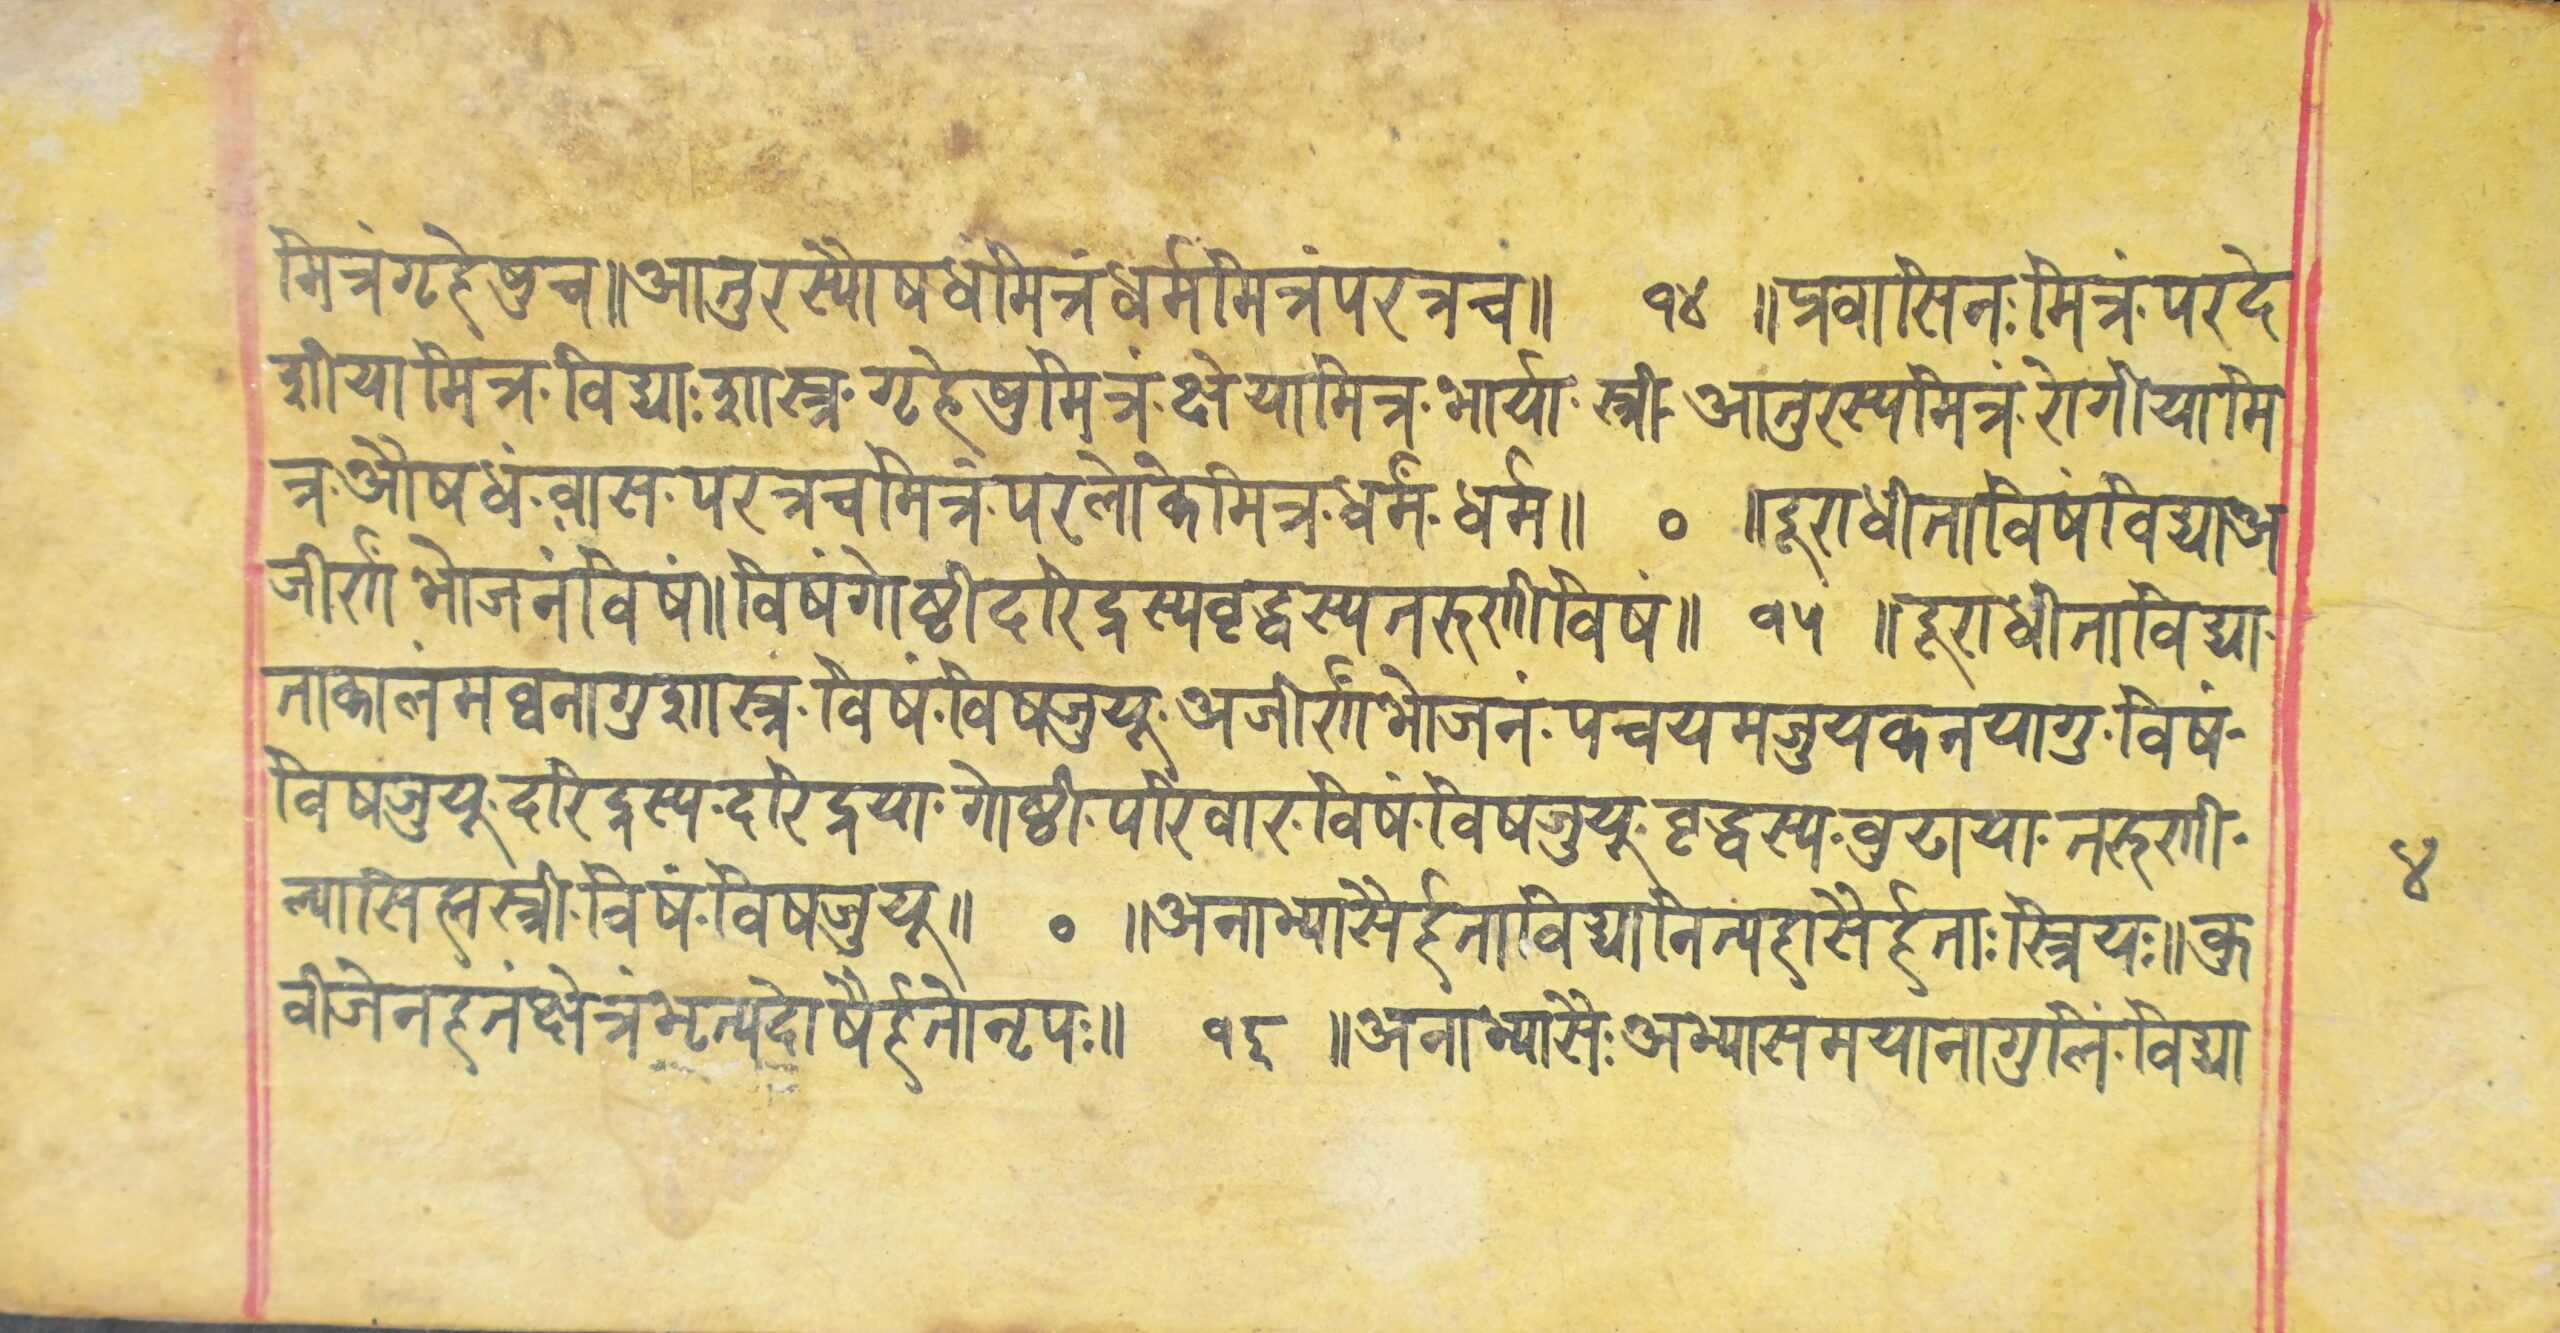 मित्रंगृहेषुच॥आतुरस्यौषधंमित्रंधर्ममित्रंपरत्रच॥ १४ ॥प्रवासिनः मित्रं॰परदे
शीयामित्र॰विद्याः शास्त्र॰गृहेषुमित्रं॰छेयामित्र॰भार्या॰स्त्री॰आतुरस्यमित्रं॰रोगीयामि
त्र॰औषधं॰वास॰परत्रचमित्रं॰परलोकेमित्र॰धर्मं॰धर्म॥ ० ॥दूराधीताविषंविद्याअ
जीर्णंभोजनंविषं॥विषंगोष्ठीदरिद्रस्यवृद्धस्यतरुणीविषं॥ १५ ॥दूराधीताविद्या॰
ताकालंमब्वनागुशास्त्र॰विषं॰विषजुयू॰अजीर्णंभोजनं॰पचयमजुयकनयागु॰विषं॰
विषजुयू॰दरिद्रस्य॰दरिद्रया॰गोष्ठी॰परिवार॰विषं॰विषजुयू॰वृद्धस्य॰वुढाया॰तरुणी॰
ल्यासिह्मस्त्री॰विषं॰विषजुयू॥ ० ॥अनाभ्यासैर्हताविद्यानित्यहासैर्हताः स्त्रियः॥कु
वीजेनहतंक्षेत्रंभृत्यदोषैर्हतोनृपः॥ १६ ॥अनाभ्यासैः अभ्यासमयानागुलिं॰विद्या
४